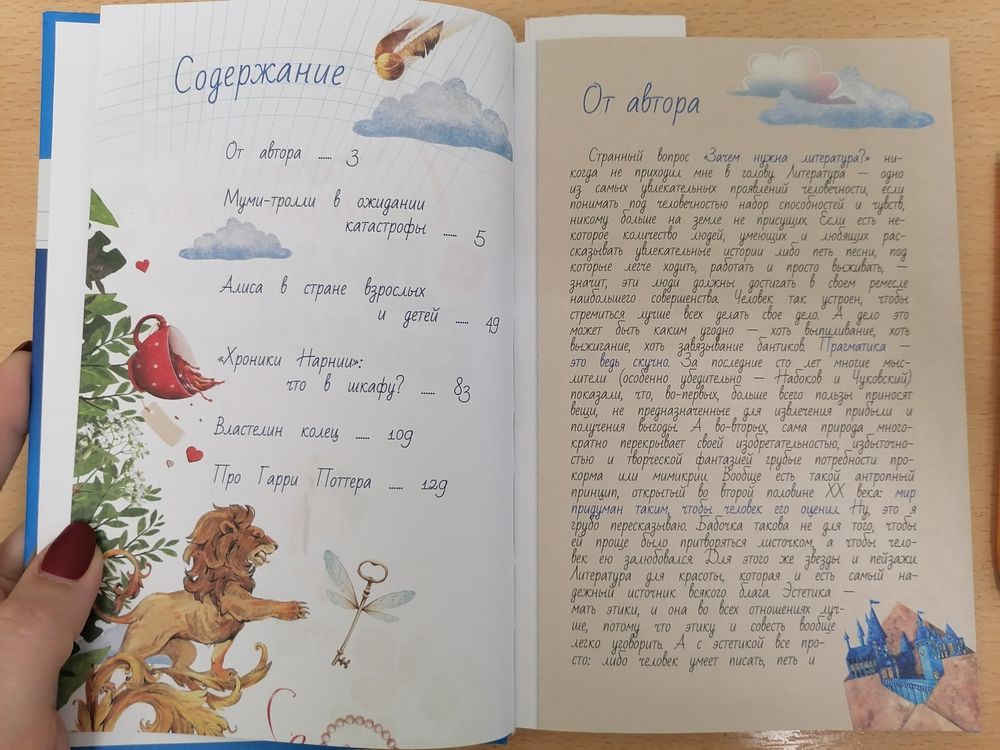 Содержание
От автора ...... 3
Муми-тролли в ожидании
катастрофы ...... 5
Алиса в стране взрослых
и детей ...... 49
«Хроники Нарнии»:
что в шкафу? ...... 83
Властелин колец ...... 109
Про Гарри Поттера ...... 129
От автора
Странный вопрос «Зачем нужна литература?» ни-
когда не приходил мне в голову. Литература — одно
из самых увлекательных проявлений человечности, если
понимать под человечностью набор способностей и чувств,
никому больше на земле не присущих. Если есть не-
которое количество людей, умеющих и любящих рас-
сказывать увлекательные истории либо петь песни, под
которые легче ходить, работать и просто выживать, —
значит, эти люди должны достигать в своем ремесле
наибольшего совершенства. Человек так устроен, чтобы
стремиться лучше всех делать свое дело. А дело это
может быть каким угодно — хоть выпиливание, хоть
выжигание, хоть завязывание бантиков. Прагматика —
это ведь скучно. За последние сто лет многие мыс-
лители (особенно убедительно — Набоков и Чуковский)
показали, что, во-первых, больше всего пользы приносят
вещи, не предназначенные для извлечения прибыли и
получения выгоды. А во-вторых, сама природа много-
кратно перекрывает своей изобретательностью, избыточно-
стью и творческой фантазией грубые потребности про-
корма или мимикрии. Вообще есть такой антропный
принцип, открытый во второй половине XX века: мир
придуман таким, чтобы человек его оценил. Ну, это я
грубо пересказываю. Бабочка такова не для того, чтобы
ей проще было притворяться листочком, а чтобы чело-
век ею залюбовался. Для этого же звезды и пейзажи.
Литература для красоты, которая и есть самый на-
дежный источник всякого блага. Эстетика —
мать этики, и она во всех отношениях луч-
ше, потому что этику и совесть вообще
легко уговорить. А с эстетикой все про-
сто: либо человек умеет писать, петь и